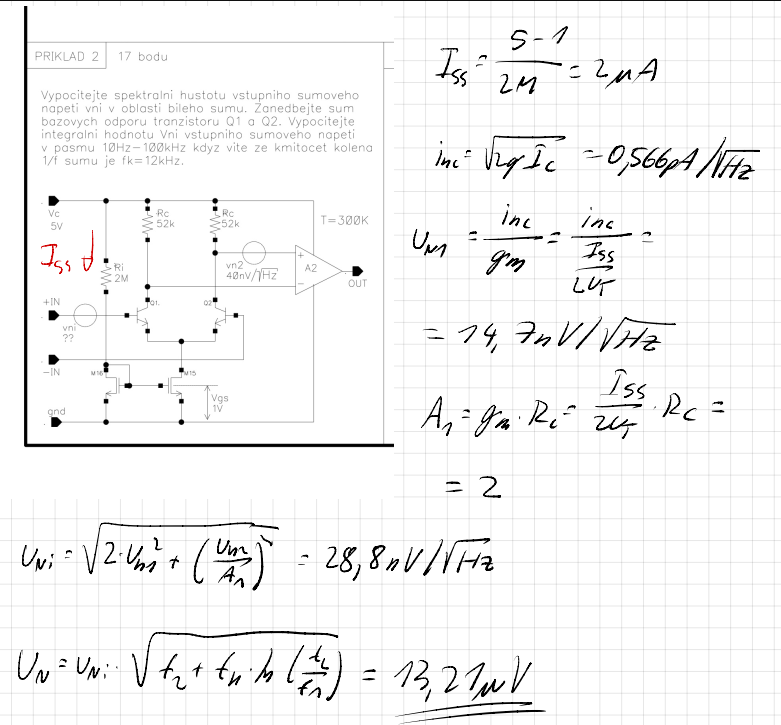 PRIKLAD 2
17 bodu
Vypocitejte spektralni hustotu vstupniho sumoveho
napeti vni v oblasti bileho sumu. Zanedbejte sum
bazovych odporu tranzistoru Q1 a Q2. Vypocitejte
integralni hodnotu Vni vstupniho sumoveho napeti
v pasmu 10Hz-100kHz kdyz vite ze kmitocet kolena
1/f sumu je fk=12kHz.
Vc
5V
Rc
52k
Rc
52k
T=300K
Iss
Ri
2M
vn2
40nV/√Hz
+
A2
-
OUT
+IN
Q1
Q2
vni
??
-IN
M16
M15
Vgs
1V
gnd
Iss = (5-1)/2M = 2μA
inc = √(2qIc) = 0,566pA/√Hz
UN1 = inc/gm = inc/(Iss/2UT) =
= 14,7nV/√Hz
A1 = gm·Rc = Iss/2UT · Rc =
= 2
UNi = √(2·Un1² + (Un2/A1)²) = 28,8nV/√Hz
UN = UNi · √(f2 + fk·ln(f2/f1)) = 13,21μV